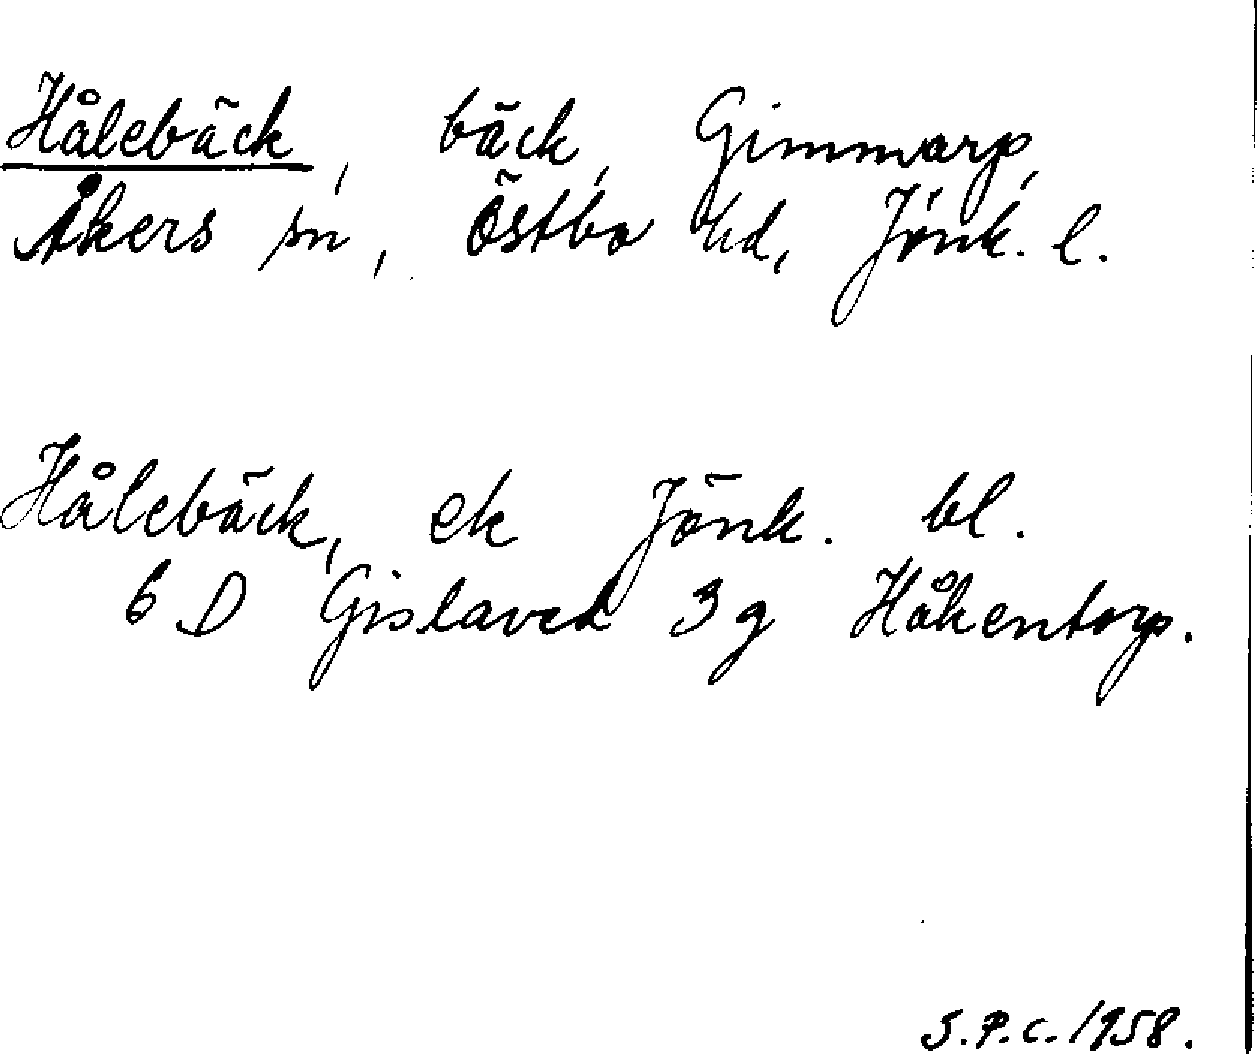 Hålebäck, bäck, Gimmarp,
Åkers sn, Östbo hd, Jönk. l.
Hålebäck, ek Jönk. bl.
6 D Gislaved 3 g Håkentorp.
S.P.C. 1958.